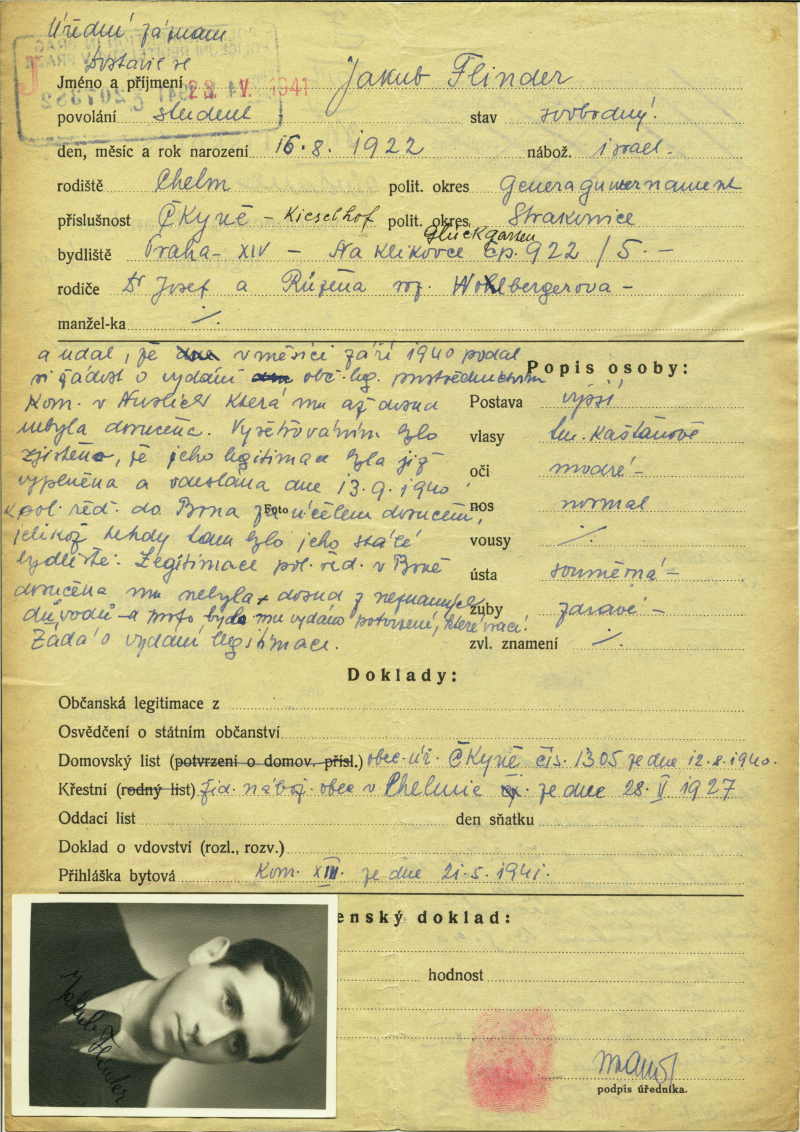 Úřední záznam
Dostavil se
Jméno a příjmení Jakub Flinder
23. V. 1941
povolání student stav svobodný.
den, měsíc a rok narození 16. 8. 1922 nábož. israel.
rodiště Chelm polit. okres Generaguvernament
příslušnost Čkyně - Kieselhof polit. okres Strakonice
Glückgarten
bydliště Praha - XIV - Na Klikovce čp. 922 / 5. -
rodiče Dr Josef a Růžena roz. Wohlbergerova -
manžel-ka ./.
a udal, že dne v měsíci září 1940 podal
si žádost o vydání obč. leg. prostřednictvím
Kom. v Nuslích která mu až dosud
nebyla doručena. Vyšetřováním bylo
zjištěno, že jeho legitimace byla již
vyplněna a odeslána dne 13. 9. 1940
pol. řed. do Brna za účelem doručení,
jelikož tehdy tam bylo jeho stálé
bydliště. Legitimace pol. řed. v Brně
doručena mu nebyla dosud z neznámých
důvodů a proto bylo mu vydáno potvrzení, které vrací.
Žádá o vydání legitimace.
Foto
Popis osoby:
Postava vyšší
vlasy tm. kaštanové
oči modré -
nos normal
vousy ./.
ústa souměrná -
zuby zdravé -
zvl. znamení ./.
Doklady:
Občanská legitimace z
Osvědčení o státním občanství
Domovský list (potvrzení o domov. přísl.) obec. úř. Čkyně čís. 1305 ze dne 12. 8. 1940.
Křestní (rodný list) žid. nábož. obec v Chelmie ze dne 28. V 1927
Oddací list den sňatku
Doklad o vdovství (rozl., rozv.)
Přihláška bytová Kom. XIII. ze dne 21. 5. 1941.
enský doklad:
hodnost
Jakub Flinder
podpis úředníka.